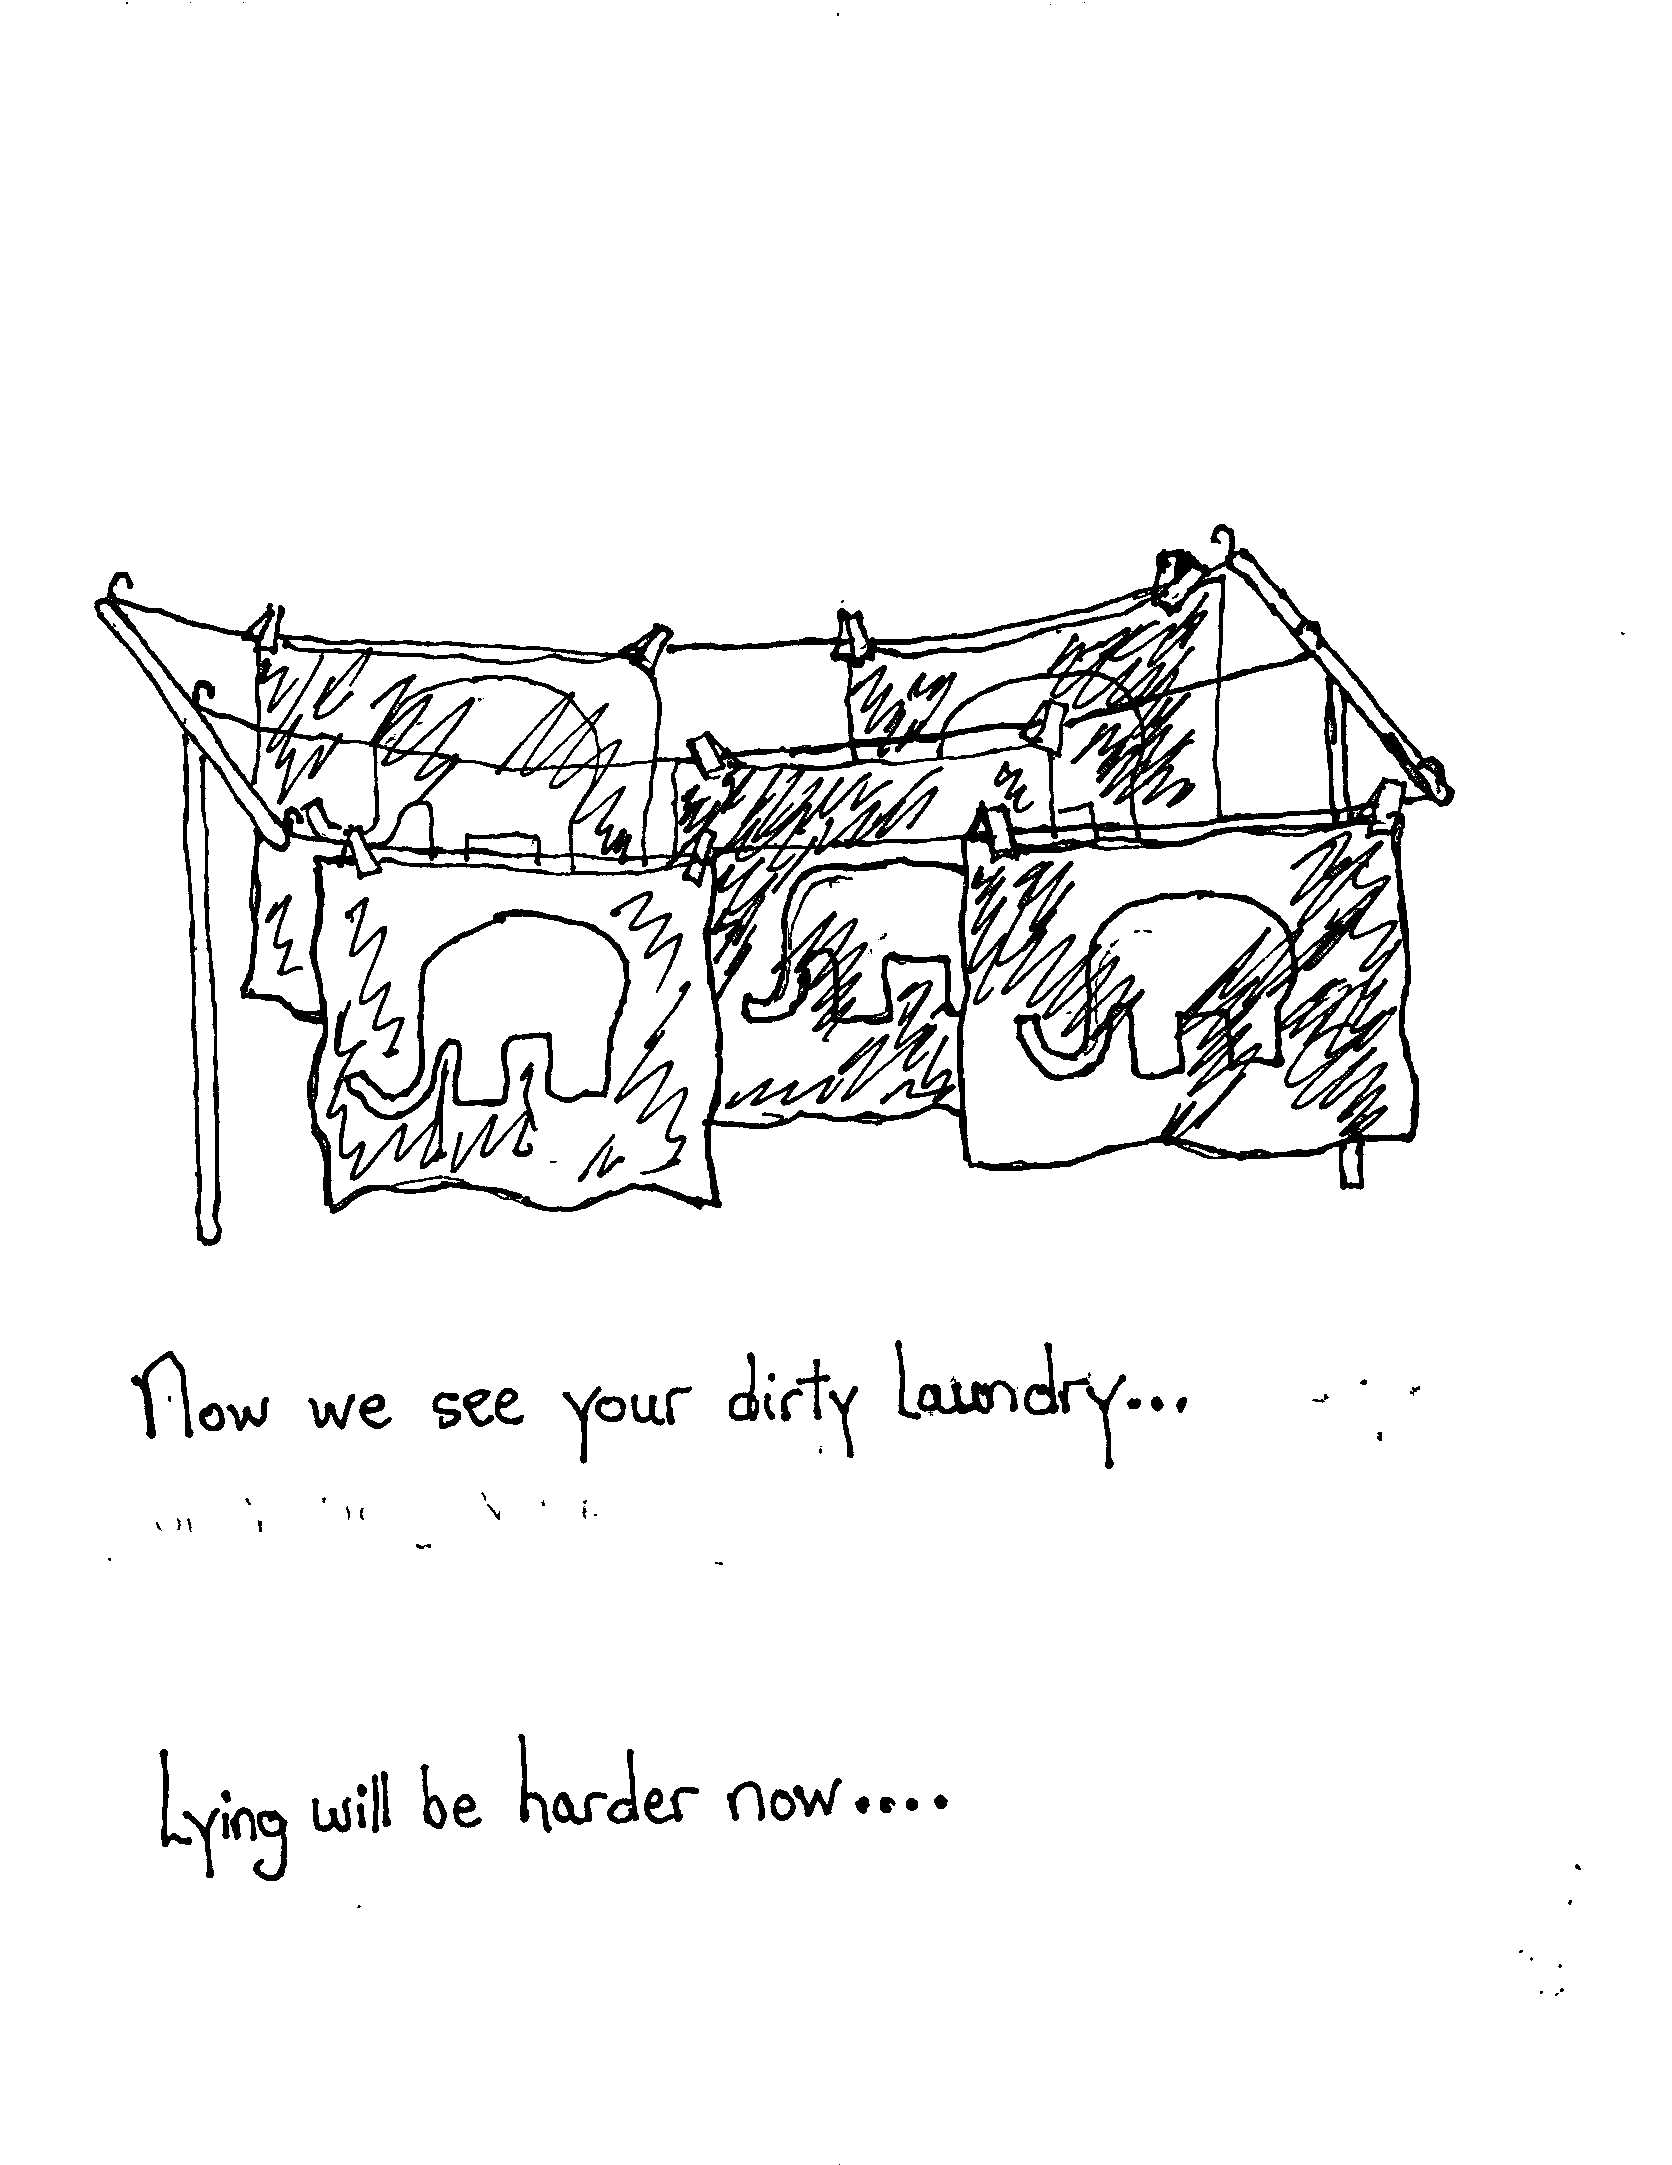 Now we see your dirty Laundry...
Lying will be harder now....